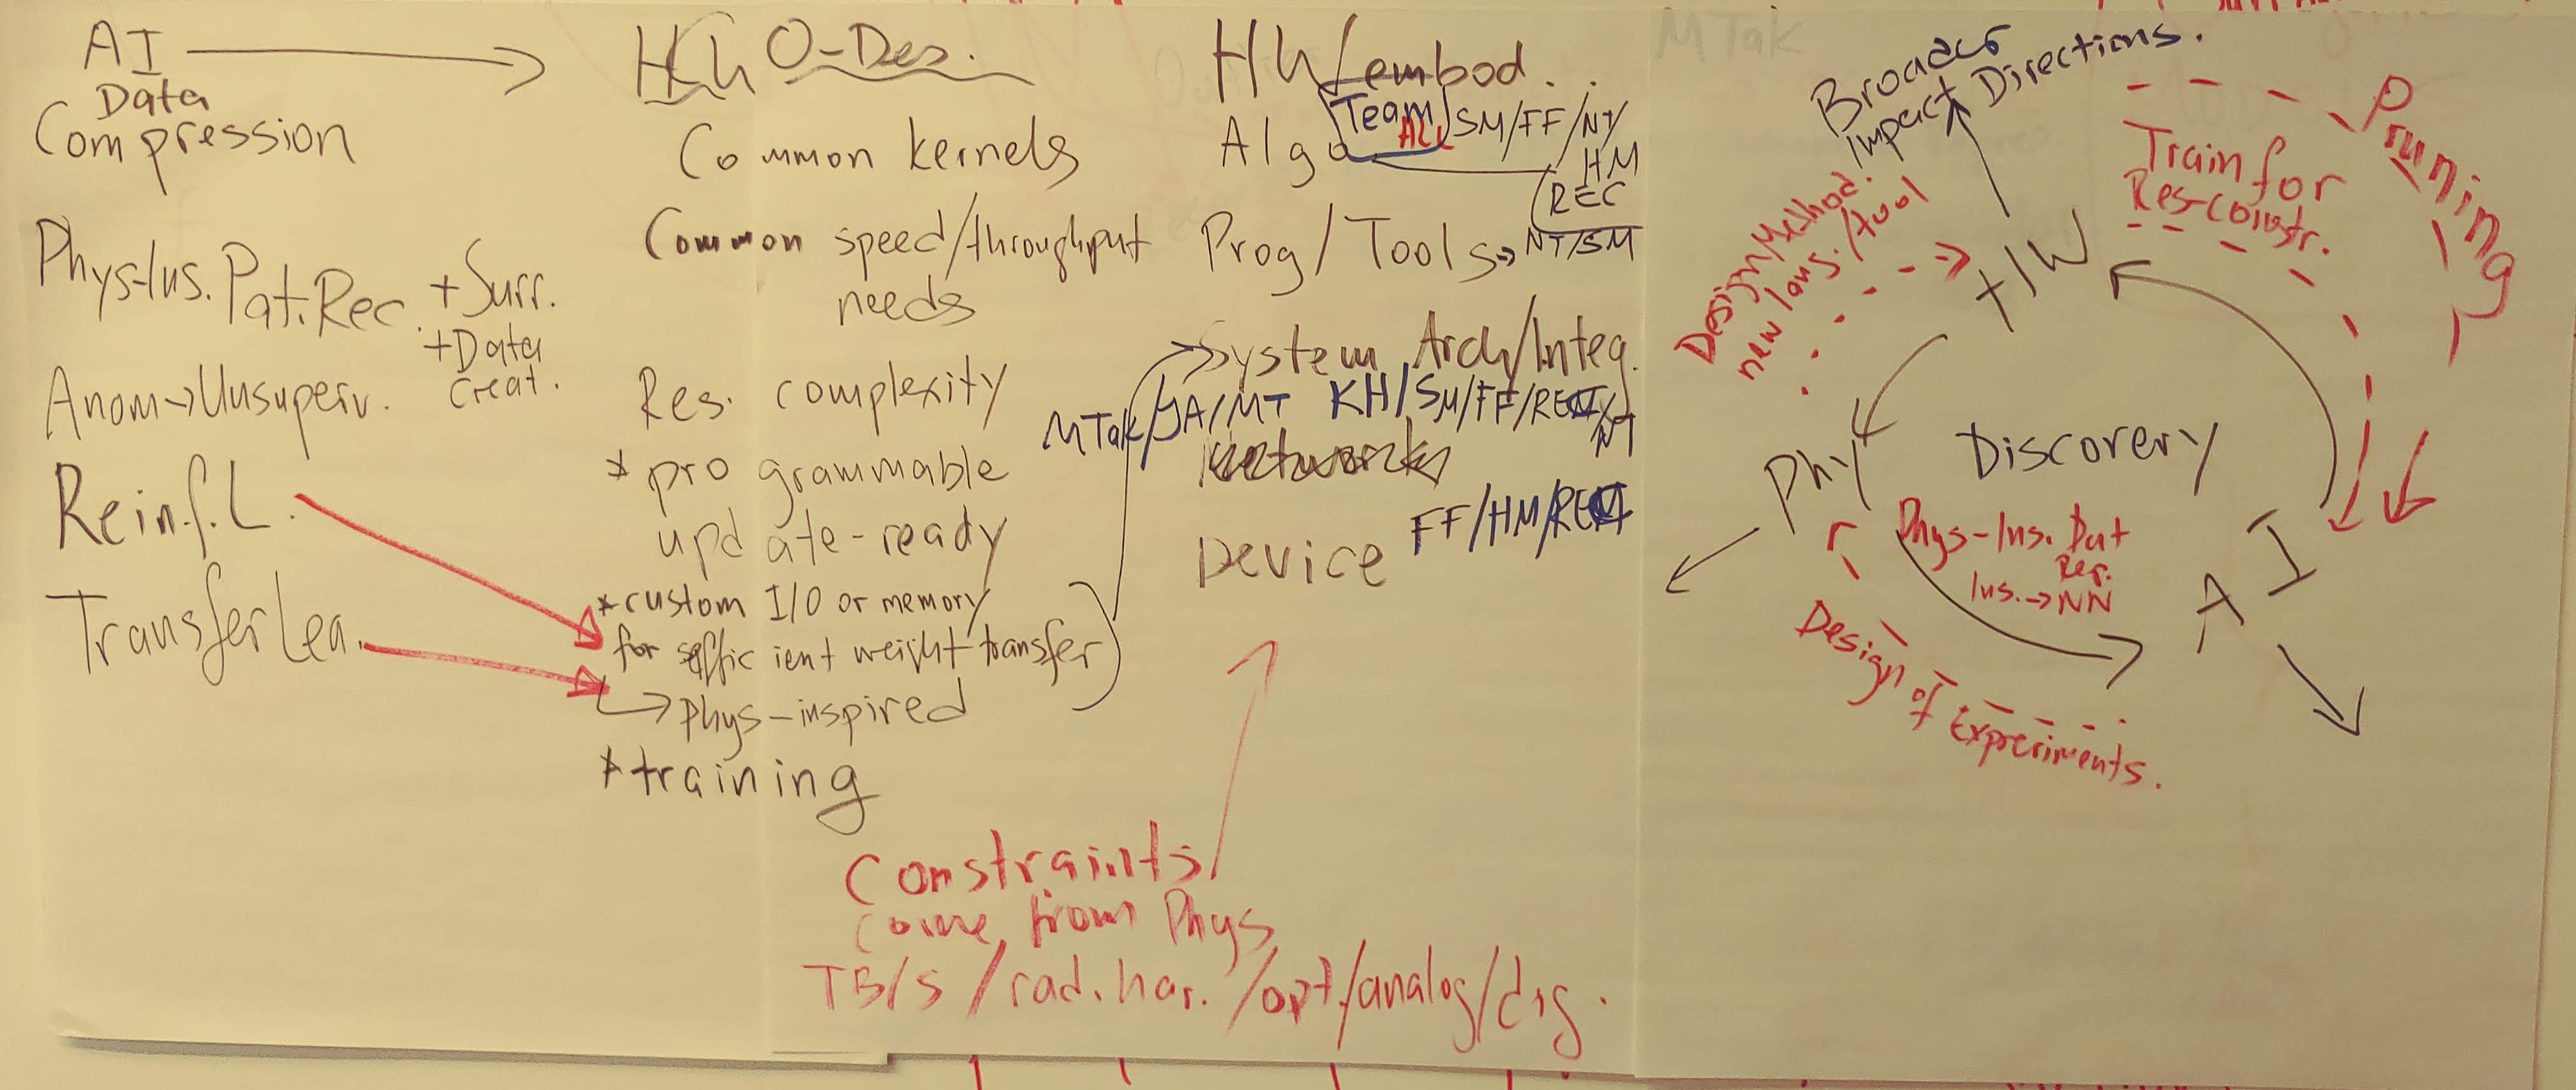 AI
Data
Compression
Phys-Ins. Pat. Rec. + Surr.
+Data
creat.
Anom→Unsuperv.
Reinf. L.
Transfer Lea.
O-Des.
Common kernels
Common speed/throughput
needs
Res. complexity
* programmable
update-ready
* custom I/O or memory
for efficient weight transfer
↳ Phys-inspired
* training
HW/embod.
Team
ALL
SM/FF/NT/
HM
Algo
REC
Prog/Tools → NT/SM
System Arch/Integ.
MTak/JA/MT KH/SM/FF/REC/
NT
Device FF/HM/REC
Constraints
come from Phys
TB/s / rad. har. / opt/analog/dig.
MTak
Broader
Impact Directions.
Design Method.
new lang./tool
HW
Train for
Res-constr.
Pruning
Discovery
Phy
Phys-Ins. Pat
Rec.
Ins. → NN
AI
Design of Experiments.